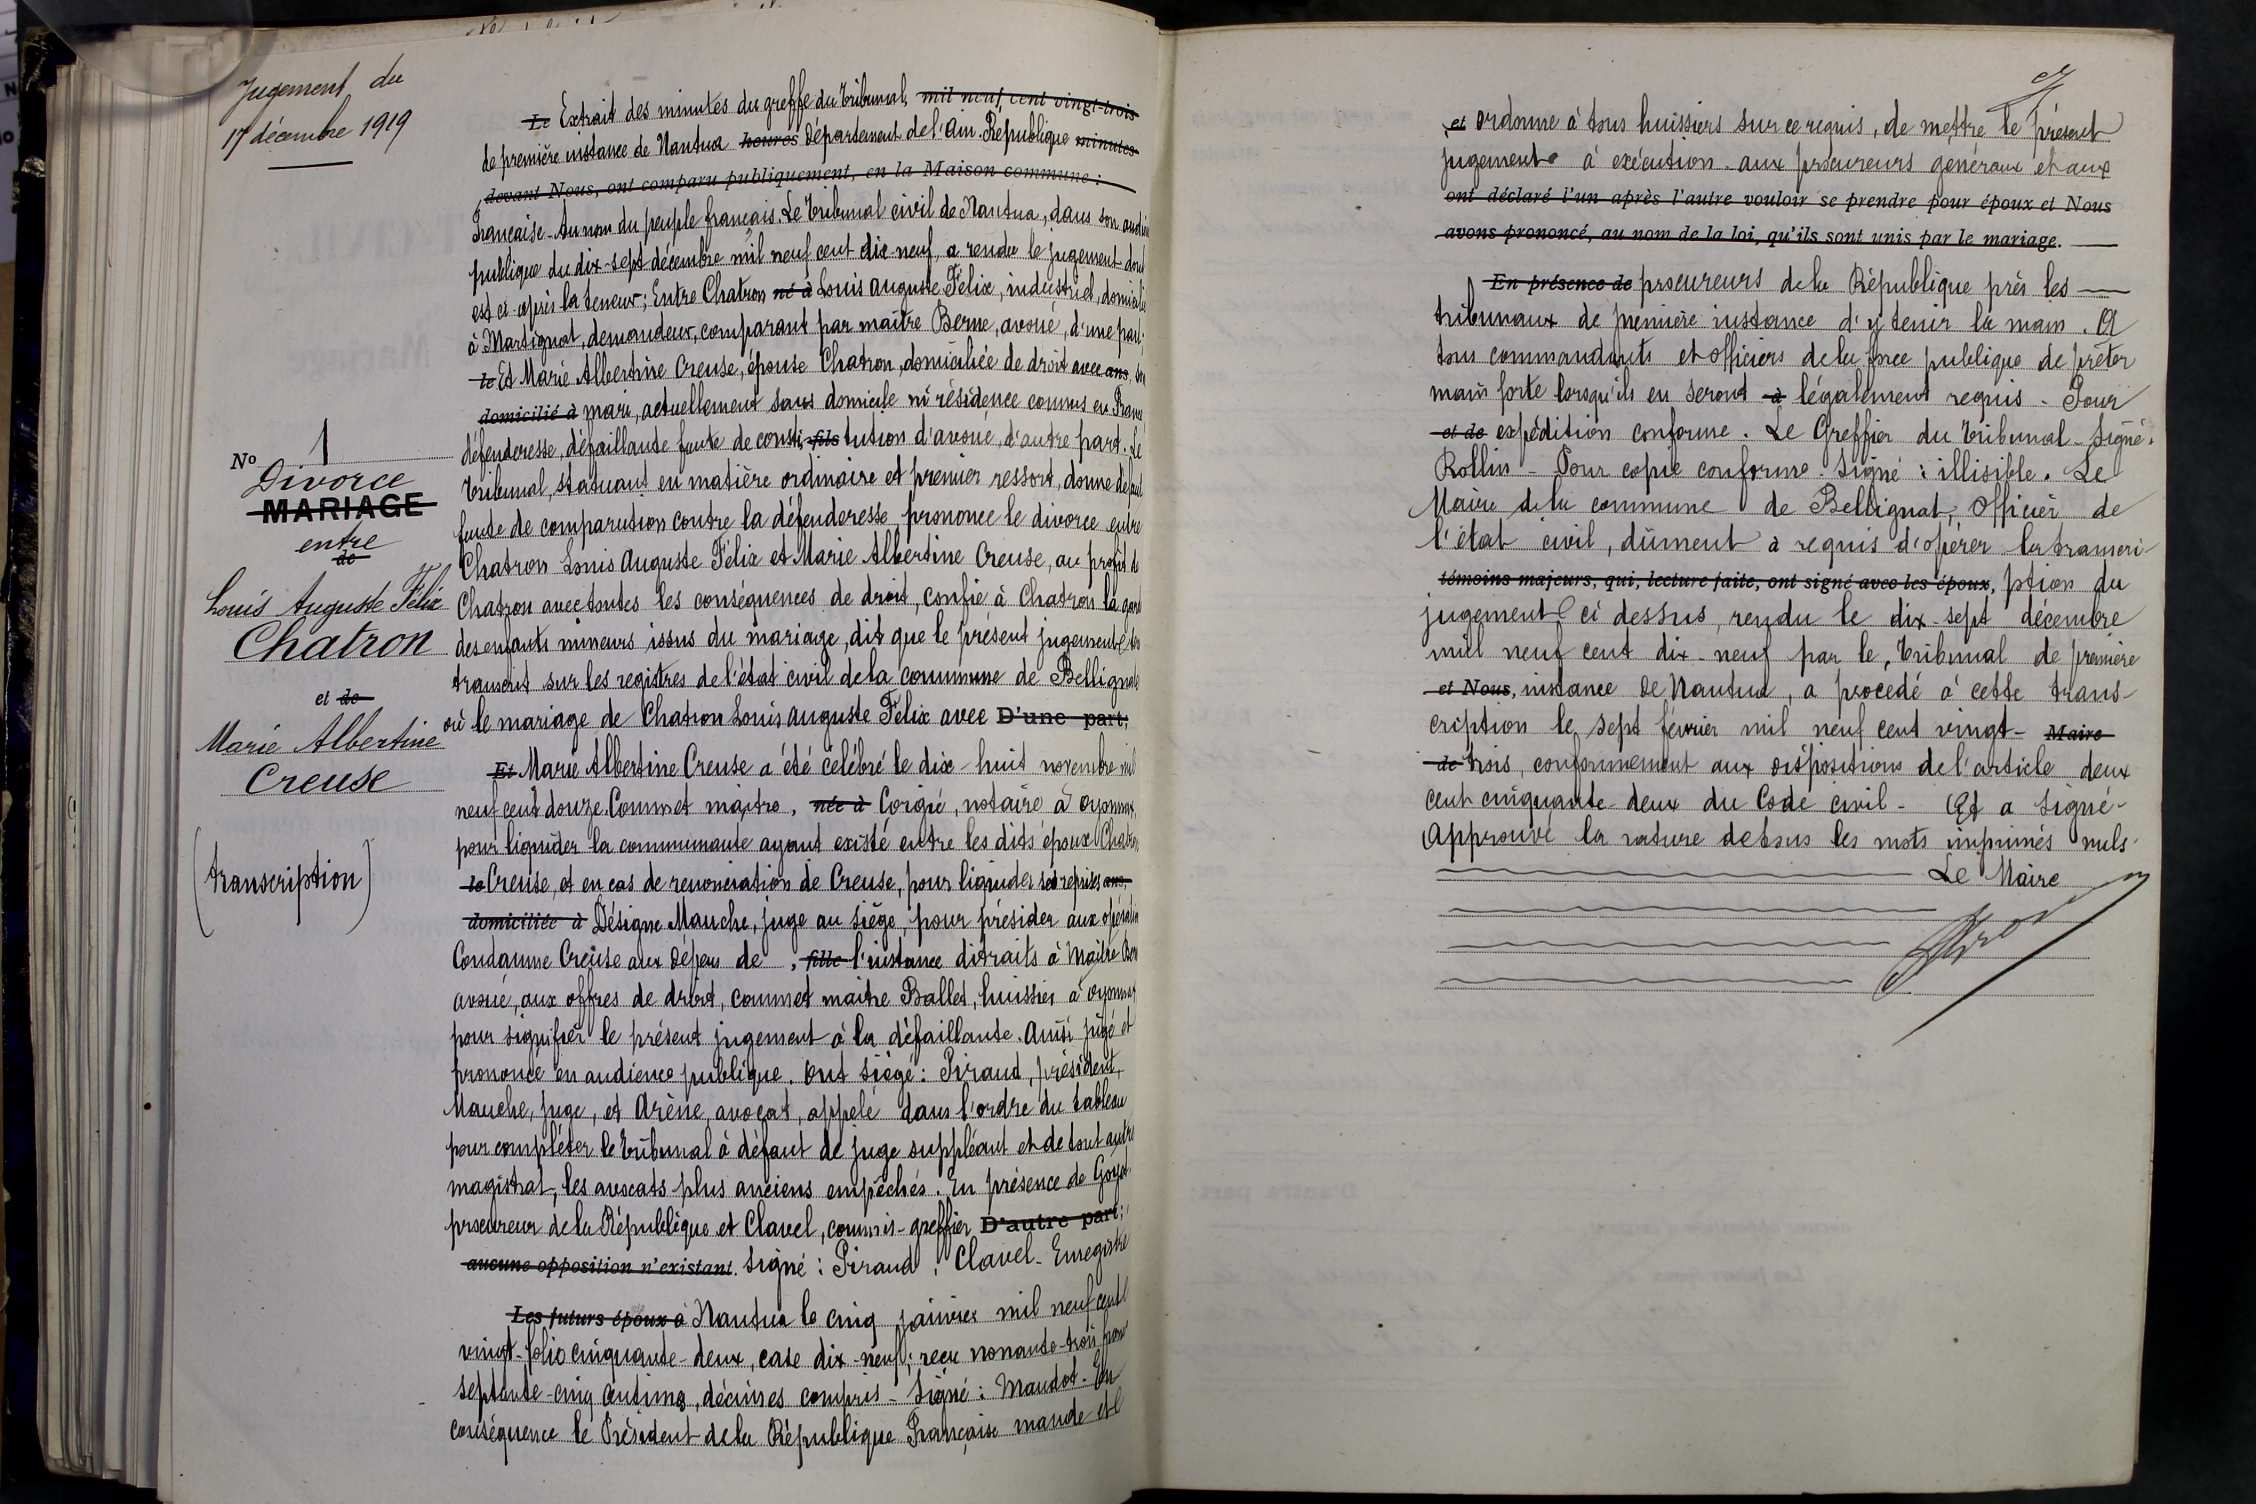 Jugement du
17 décembre 1919
No 1
Divorce
MARIAGE
entre
de
Louis Auguste Félix
Chatron
et de
Marie Albertine
Creuse
(transcription)
Le Extrait des minutes du greffe du Tribunal, mil neuf cent vingt-trois
de première instance de Nantua heures département de l'Ain. République minutes
devant Nous, ont comparu publiquement, en la Maison commune :
Française - Au nom du peuple français. Le Tribunal civil de Nantua, dans son audien
publique du dix-sept décembre mil neuf cent dix-neuf, a rendu le jugement dont
est ci-après la teneur ; Entre Chatron né à Louis Auguste Félix, industriel, domicilié
à Martignat, demandeur, comparant par maître Berne, avoué, d'une part ;
le Et Marie Albertine Creuse, épouse Chatron, domiciliée de droit avec ans, son
domicilié à mari, actuellement sans domicile ni résidence connus en France
défenderesse, défaillante faute de consti- fils tution d'avoué, d'autre part. Le
Tribunal, statuant en matière ordinaire et premier ressort, donne défaut
faute de comparution contre la défenderesse, prononce le divorce entre
Chatron Louis Auguste Félix et Marie Albertine Creuse, au profit de
Chatron avec toutes les conséquences de droit, confie à Chatron la gard
des enfants mineurs issus du mariage, dit que le présent jugement
transcrit sur les registres de l'état civil de la commune de Bellignat
où le mariage de Chatron Louis Auguste Félix avec D'une part ;
Et Marie Albertine Creuse a été célébré le dix-huit novembre mil
neuf cent douze. Commet maître, née à Corgié, notaire à Oyonnax,
pour liquider la communauté ayant existé entre les dits époux Chatron
le Creuse, et en cas de renonciation de Creuse, pour liquider ses reprises ans,
domiciliée à Désigne Mauche, juge au siège, pour présider aux opérations
Condamne Creuse aux dépens de , fille l'instance distraits à Maître Ber
avoué, aux offres de droit, commet maître Ballet, huissier à Oyonnax
pour signifier le présent jugement à la défaillante. Ainsi jugé et
prononcé en audience publique. Ont siégé : Piraud, président,
Mauche, juge, et Arène, avocat, appelé dans l'ordre du tableau
pour compléter le Tribunal à défaut de juge suppléant et de tout autre
magistrat, les avocats plus anciens empêchés. En présence de
procureur de la République et Clavel, commis-greffier D'autre part ;
aucune opposition n'existant. Signé : Piraud ; Clavel - Enregistré
Les futurs époux à Nantua le cinq janvier mil neuf cent
vingt - folio cinquante-deux, case dix-neuf ; reçu nonante-trois francs
septante-cinq centimes, décimes compris - Signé : Maudot. En
conséquence le Président de la République Française mande et
et ordonne à tous huissiers sur ce requis, de mettre le présent
jugement à exécution - aux procureurs généraux et aux
ont déclaré l'un après l'autre vouloir se prendre pour époux et Nous
avons prononcé, au nom de la loi, qu'ils sont unis par le mariage.
En présence de procureurs de la République près les
tribunaux de première instance d'y tenir la main. A
tous commandants et officiers de la force publique de prêter
main forte lorsqu'ils en seront à légalement requis - Pour
et de expédition conforme. Le Greffier du Tribunal - Signé :
Rollin - Pour copie conforme. Signé : illisible. Le
Maire de la commune de Bellignat, Officier de
l'état civil, dûment à requis d'opérer la transcri-
témoins majeurs, qui, lecture faite, ont signé avec les époux, ption du
jugement ci dessus, rendu le dix-sept décembre
mil neuf cent dix-neuf par le Tribunal de première
et Nous, instance de Nantua, a procédé à cette trans-
cription le sept février mil neuf cent vingt- Maire
de trois, conformément aux dispositions de l'article deux
cent cinquante-deux du Code civil - Et a signé -
Approuvé la rature dessus les mots imprimés nuls.
Le Maire